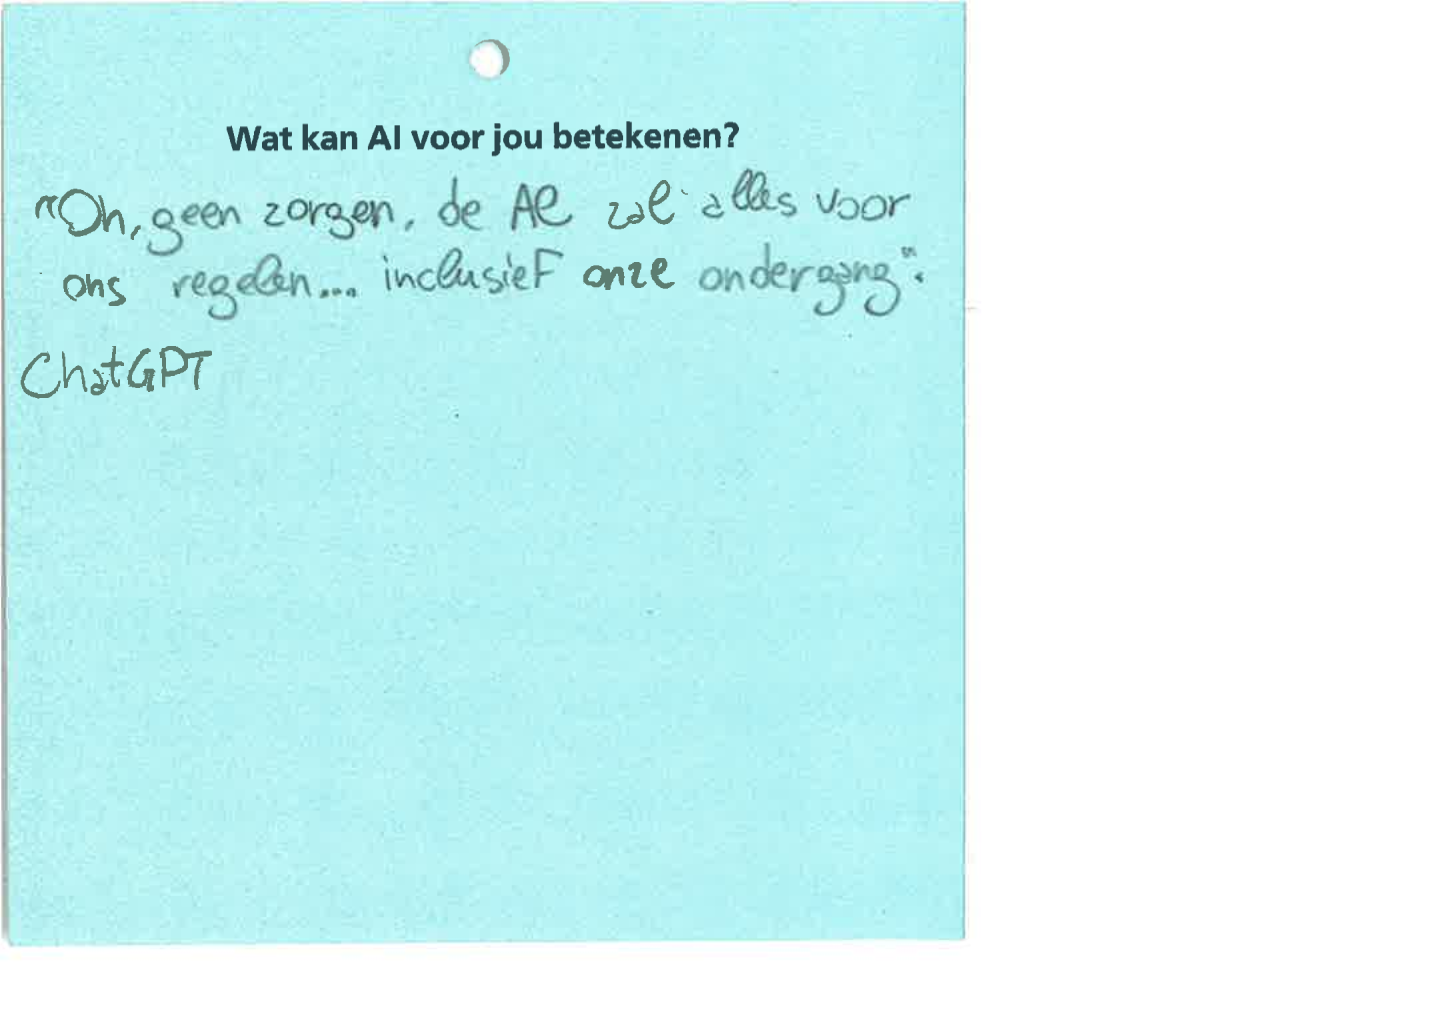 Wat kan AI voor jou betekenen?
"Oh, geen zorgen, de AI zal alles voor
ons regelen... inclusief onze ondergang".
ChatGPT